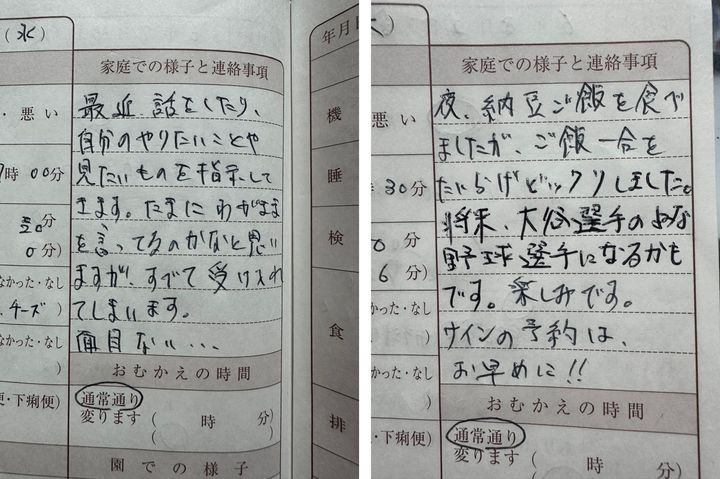 (水)
家庭での様子と連絡事項
・悪い
時00分
0分)
なかった・なし
チーズ)
なかった・なし
)
便・下痢便)
最近 話をしたり、
自分のやりたいことや
見たいものを指示して
きます。たまにわがまま
を言ってるのかなと思い
ますが、すべて受け入れ
てしまいます。
面目ない...
おむかえの時間
通常通り
変ります(時 分)
園での様子
年月日
機
睡
検
食
排
家庭での様子と連絡事項
悪い
30分
0分
6分)
なかった・なし
)
なかった・なし
)
・下痢便)
夜、納豆ご飯を食べ
ましたが、ご飯一合を
たいらげビックリしました。
将来、大谷選手のような
野球選手になるかも
です。楽しみです。
サインの予約は、
お早めに!!
おむかえの時間
通常通り
変ります(時 分)